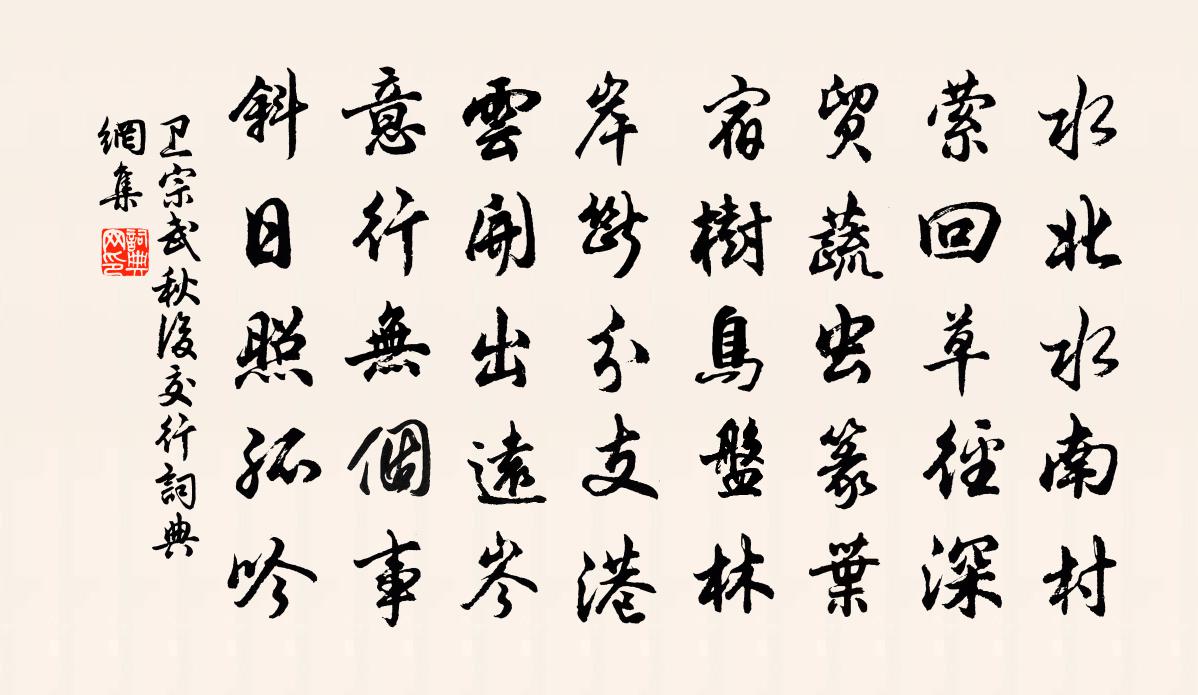 水北水南村
萦回草径深
贸蔬虫篆葉
宿樹鳥盤林
岸斷分支港
雲開出遠岑
意行無個事
斜日照孤吟
卫宗武秋後交行詞典
網集
詞典
网印